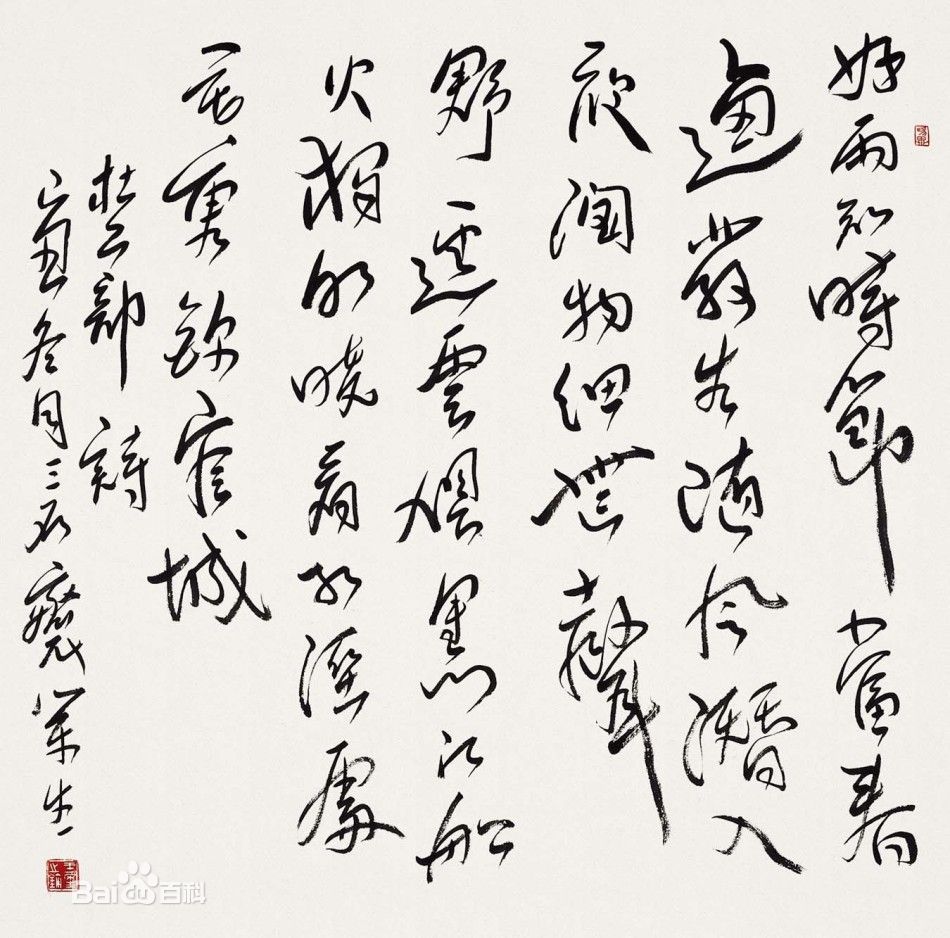 好雨知時節當春
迺發生随風潛入
夜潤物細無聲
野逕雲俱黑江船
火獨明曉看紅濕處
花重錦官城
杜工部詩
冬月三石齋
Baidu百科